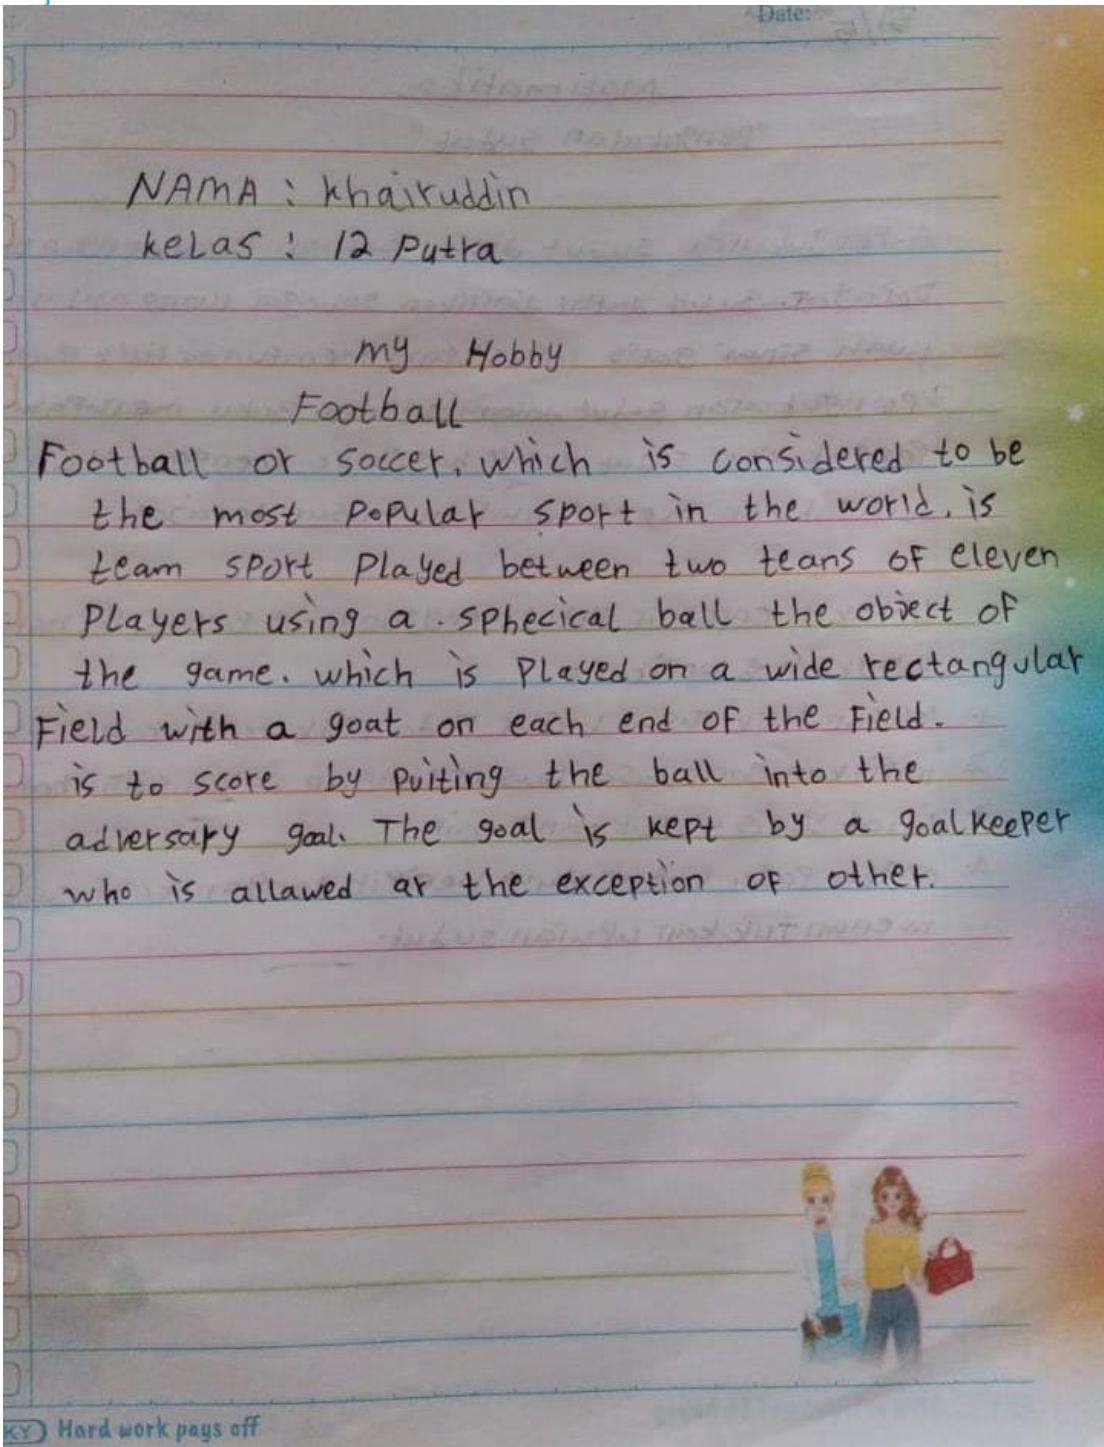 Date:
NAMA : Khairuddin
kelas : 12 Putra
my Hobby
Football
Football or soccer, which is considered to be
the most popular sport in the world, is
team sport played between two teans of eleven
players using a . sphecical ball the obiect of
the game. which is played on a wide rectangular
Field with a goat on each end of the Field.
is to score by puiting the ball into the
adversary goal. The goal is kept by a goalkeeper
who is allawed ar the exception of other.
KY Hard work pays off